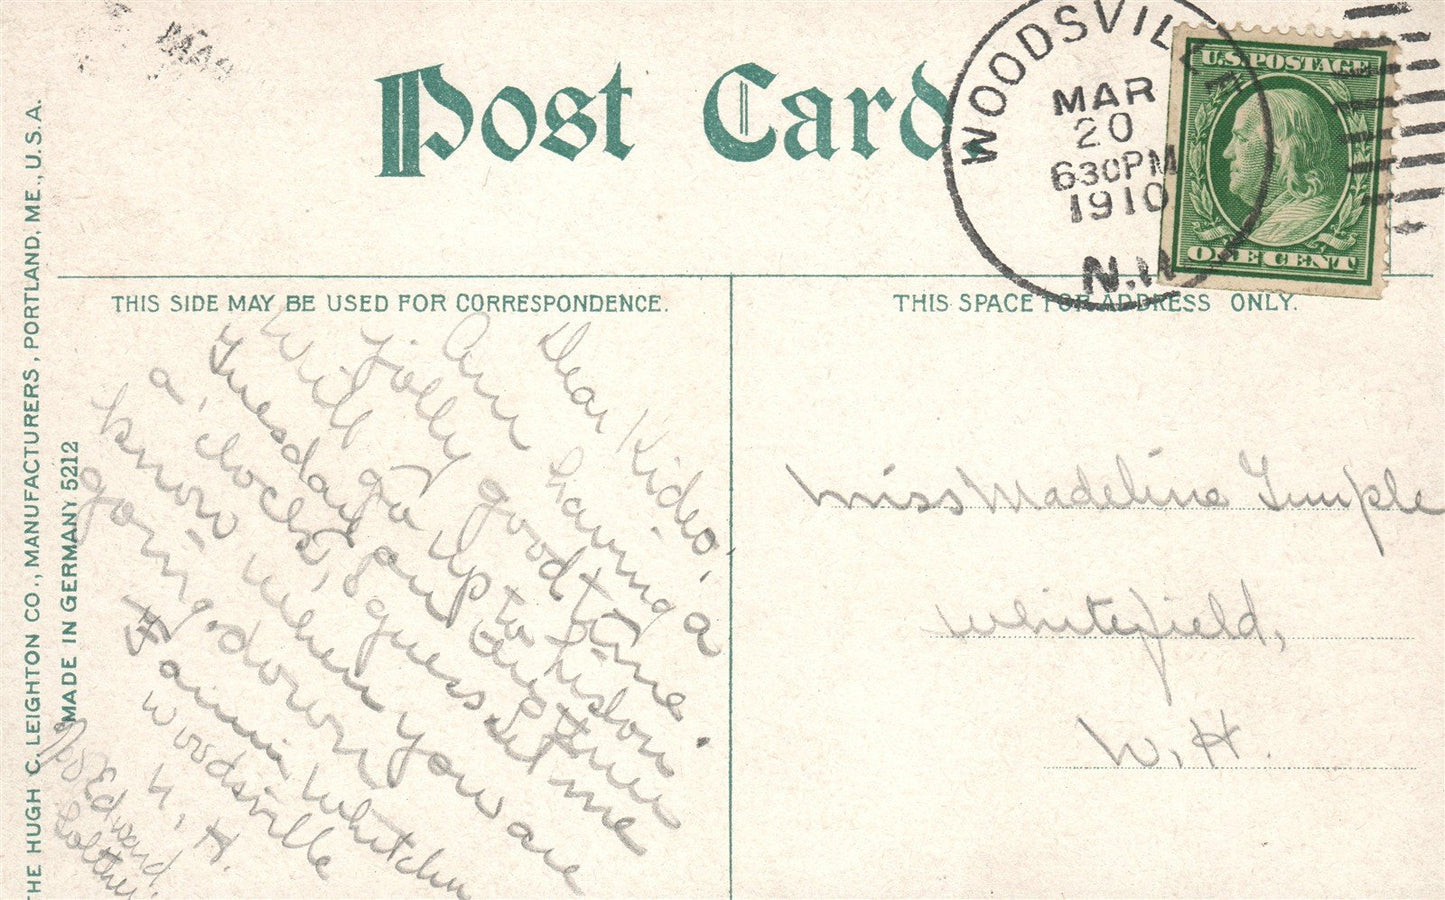 Post Card.
WOODSVILLE
MAR
20
630PM
1910
N.H.
U.S. POSTAGE
ONE CENT
THIS SIDE MAY BE USED FOR CORRESPONDENCE.
THIS SPACE FOR ADDRESS ONLY.
THE HUGH C. LEIGHTON CO., MANUFACTURERS, PORTLAND, ME., U.S.A.
MADE IN GERMANY 5212
Dear Kideo,
Am having a
jolly good time.
Will go up to Lisbon
Tuesday an
a, clock, I guess Let me
know when you are
going down
Fannie
Woodsville
N. H.
Edward
Miss Madeline
Whitefield,
N. H.